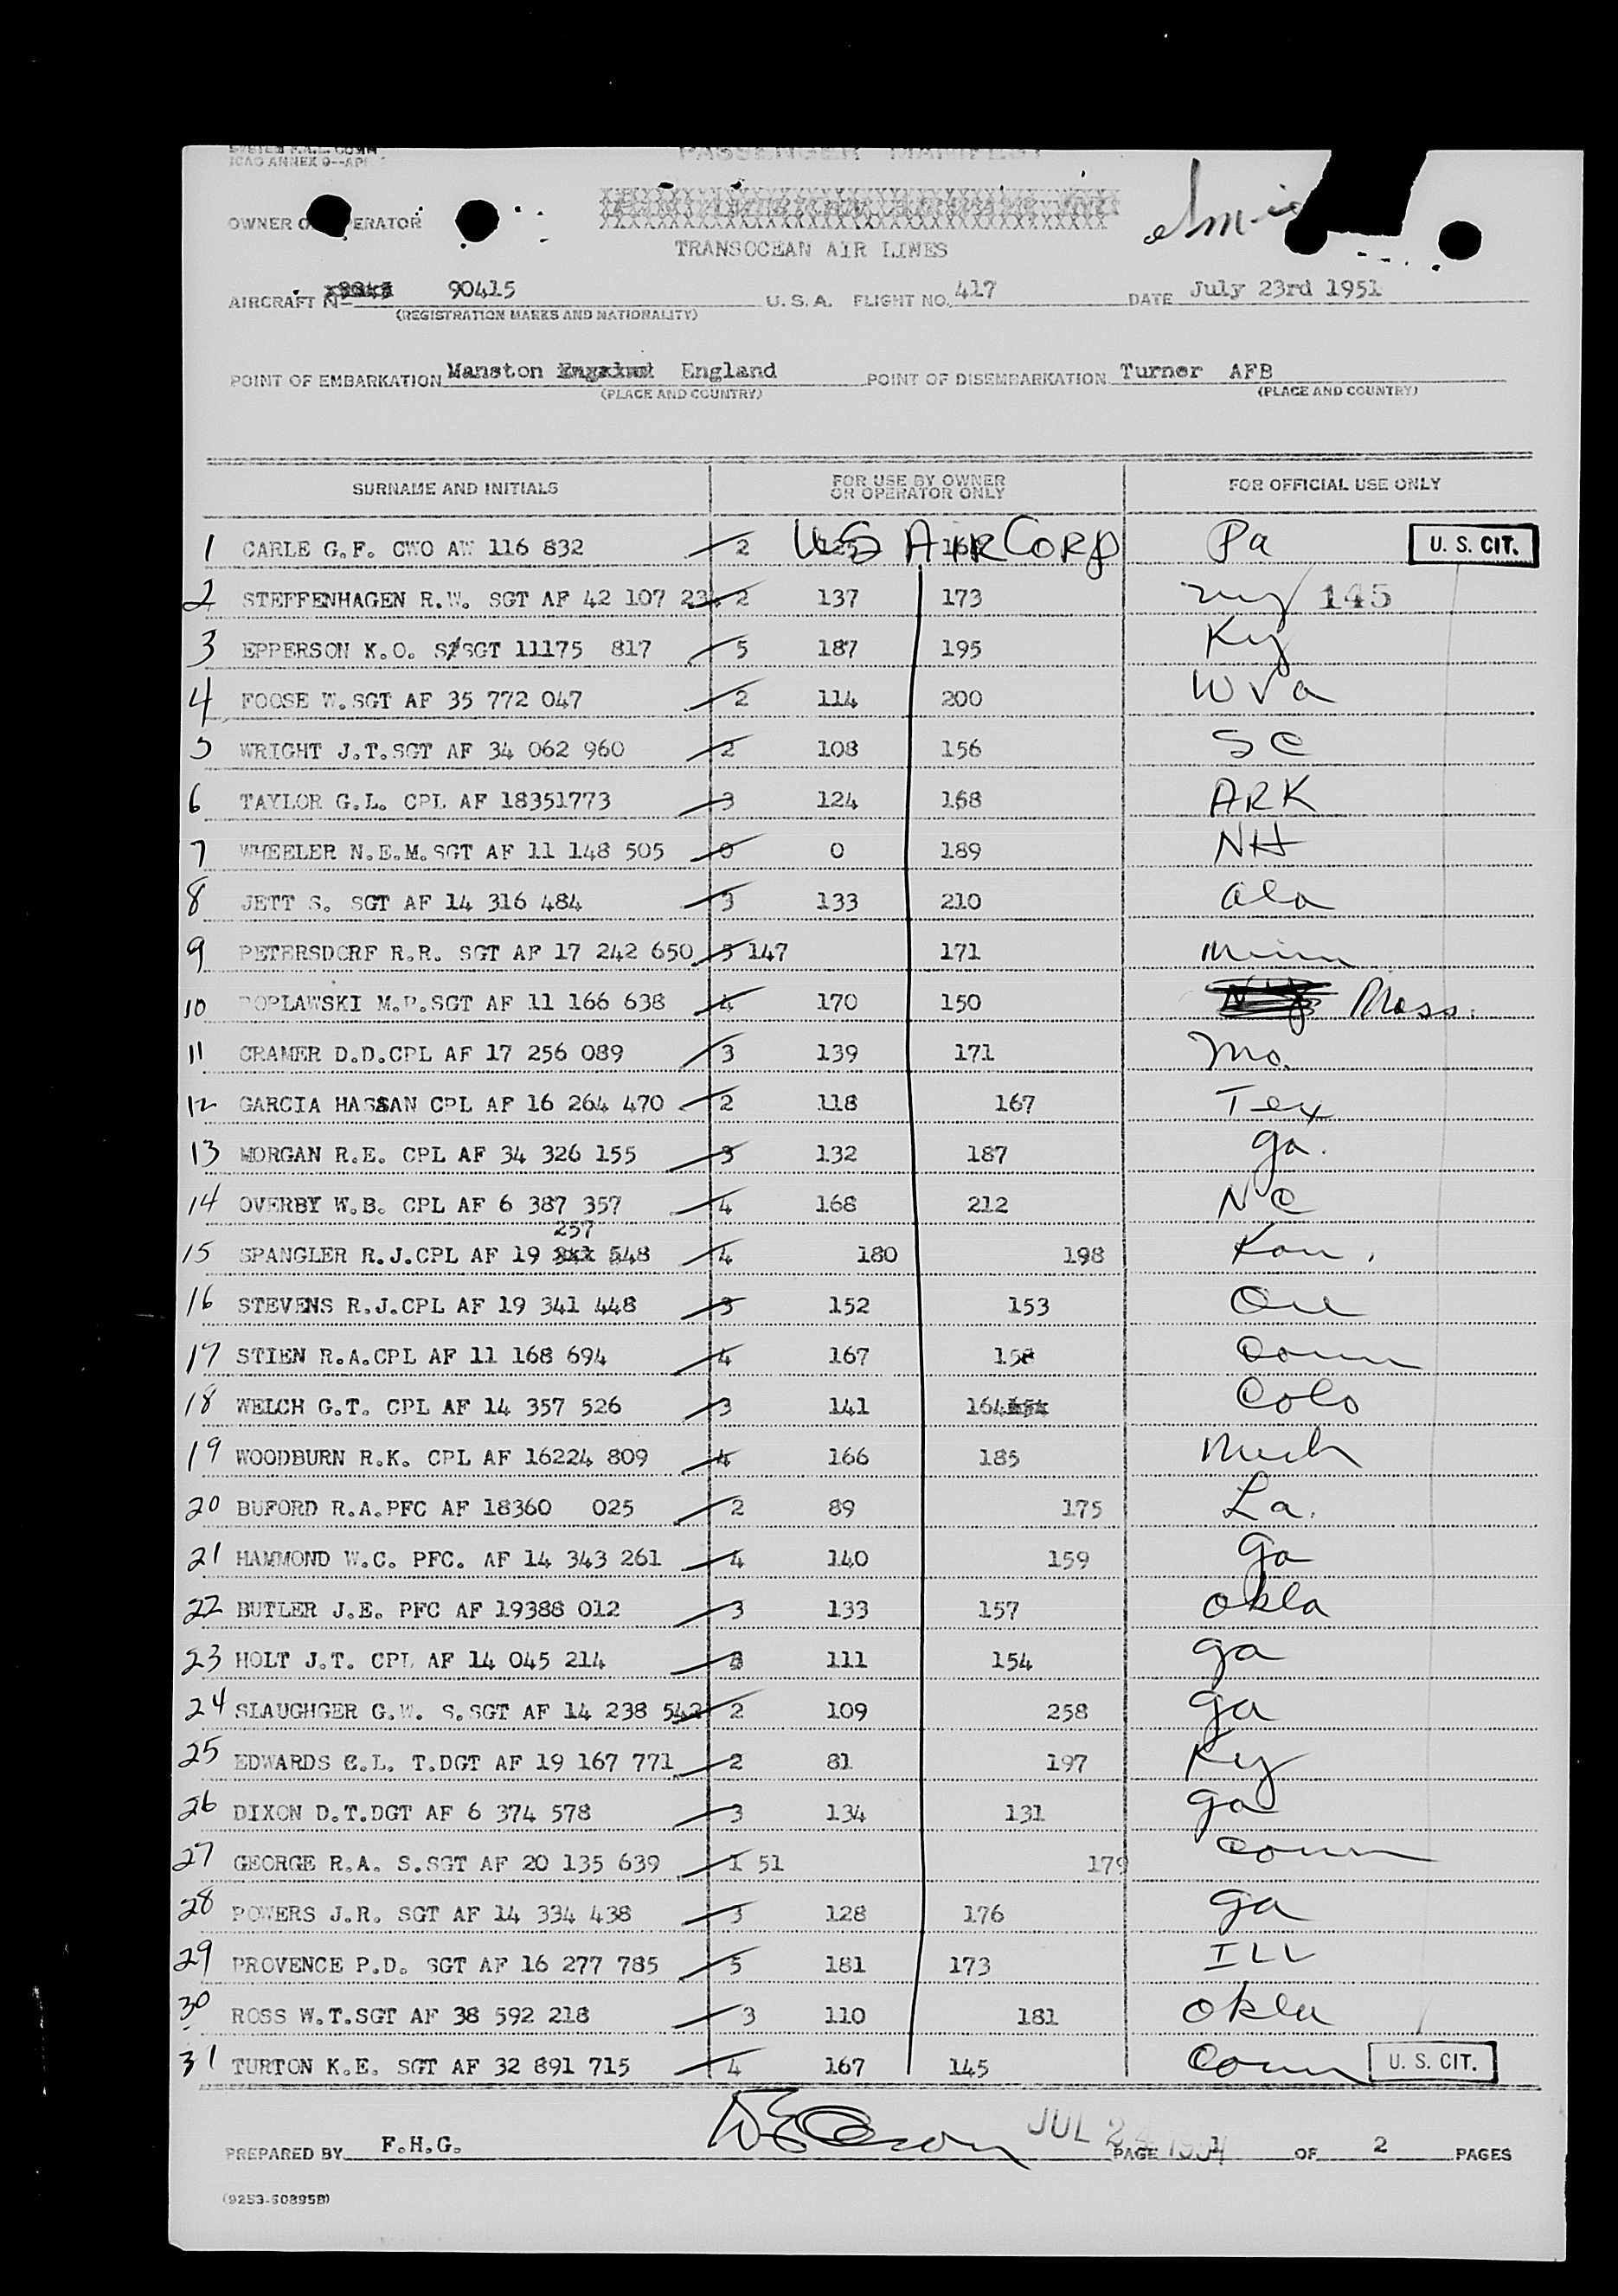 ICAO ANNEX 9--AP
PASSENGER MANIFEST
OWNER O ERATOR
TRANSOCEAN AIR LINES
AIRCRAFT N- 90415 U. S. A. FLIGHT NO. 417 DATE July 23rd 1951
(REGISTRATION MARKS AND NATIONALITY)
POINT OF EMBARKATION Manston England POINT OF DISEMBARKATION Turner AFB
(PLACE AND COUNTRY) (PLACE AND COUNTRY)
SURNAME AND INITIALS FOR USE BY OWNER OR OPERATOR ONLY FOR OFFICIAL USE ONLY
1 CARLE G.F. CWO AW 116 832 2 US AIR CORP Pa U. S. CIT.
2 STEFFENHAGEN R.W. SGT AF 42 107 23 2 137 173 ny 145
3 EPPERSON K.O. S/SGT 11175 817 5 187 195 Ky
4 FOOSE W.SGT AF 35 772 047 2 114 200 W Va
5 WRIGHT J.T.SGT AF 34 062 960 2 108 156 SC
6 TAYLOR G.L. CPL AF 18351773 3 124 168 ARK
7 WHEELER N.E.M.SGT AF 11 148 505 0 0 189 NH
8 JETT S. SGT AF 14 316 484 3 133 210 ala
9 PETERSDORF R.R. SGT AF 17 242 650 5 147 171 Minn
10 POPLAWSKI M.P.SGT AF 11 166 638 4 170 150 Mass.
11 CRAMER D.D.CPL AF 17 256 089 3 139 171 Mo.
12 GARCIA HASSAN CPL AF 16 264 470 2 118 167 Tex
13 MORGAN R.E. CPL AF 34 326 155 3 132 187 ga.
14 OVERBY W.B. CPL AF 6 387 357 4 168 212 NC
257
15 SPANGLER R.J.CPL AF 19 548 4 180 198 Kan.
16 STEVENS R.J.CPL AF 19 341 448 3 152 153 Ore
17 STIEN R.A.CPL AF 11 168 694 4 167 158 Conn
18 WELCH G.T. CPL AF 14 357 526 3 141 164 Colo
19 WOODBURN R.K. CPL AF 16224 809 4 166 185 Mich
20 BUFORD R.A.PFC AF 18360 025 2 89 175 La.
21 HAMMOND W.C. PFC. AF 14 343 261 4 140 159 ga
22 BUTLER J.E. PFC AF 19388 012 3 133 157 okla
23 HOLT J.T. CPL AF 14 045 214 3 111 154 ga
24 SLAUGHGER G.W. S.SGT AF 14 238 542 2 109 258 ga
25 EDWARDS C.L. T.DGT AF 19 167 771 2 81 197 Ky
26 DIXON D.T.DGT AF 6 374 578 3 134 131 ga
27 GEORGE R.A. S.SGT AF 20 135 639 1 51 179 Conn
28 POWERS J.R. SGT AF 14 334 438 3 128 176 ga
29 PROVENCE P.D. SGT AF 16 277 785 5 181 173 ILL
30 ROSS W.T.SGT AF 38 592 218 3 110 181 okla
31 TURTON K.E. SGT AF 32 891 715 4 167 145 Conn U. S. CIT.
PREPARED BY F.H.G. JUL 24 1951 PAGE 1 OF 2 PAGES
(9253-50895B)